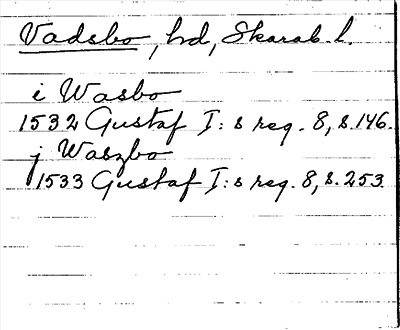 Vadsbo, hd, Skarab. l.
i Wasbo
1532 Gustaf I:s reg. 8, s. 146.
j Waszbo
1533 Gustaf I:s reg. 8, s. 253.